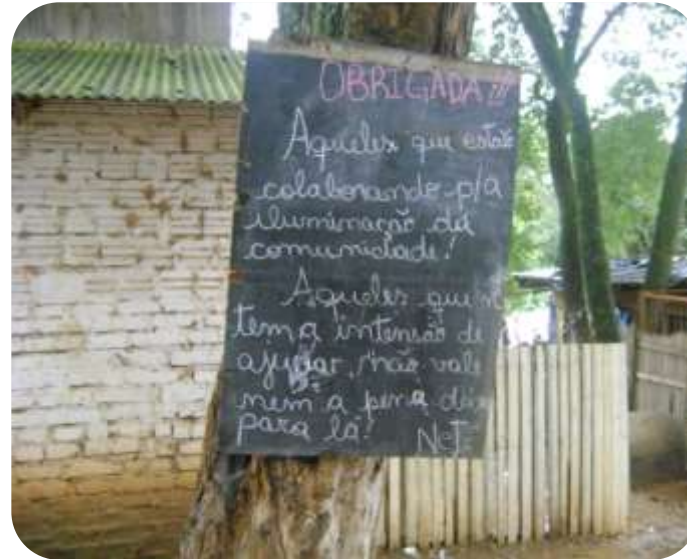 OBRIGADA!!!
Aqueles que estão
colaborando p/a
iluminação da
comunidade!
Aqueles que ñ
tem a intensão de
ajudar, não vale
nem a pena
para lá!